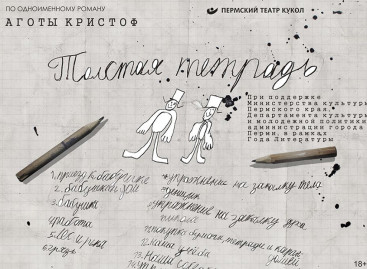 ПО ОДНОИМЕННОМУ РОМАНУ
АГОТЫ КРИСТОФ
ПЕРМСКИЙ ТЕАТР КУКОЛ
Толстая тетрадь
При поддержке
Министерства культуры
Пермского края,
Департамента культуры
и молодежной политики
администрации города
Перми, в рамках
Года Литературы
1. приезд к бабушке
2. бабушкин дом
3. бабушка
работа
5. Лес и река
упражнение на закалку тела
упражнение на закалку духа
школа
покупка бумаги, тетради и каран
18+